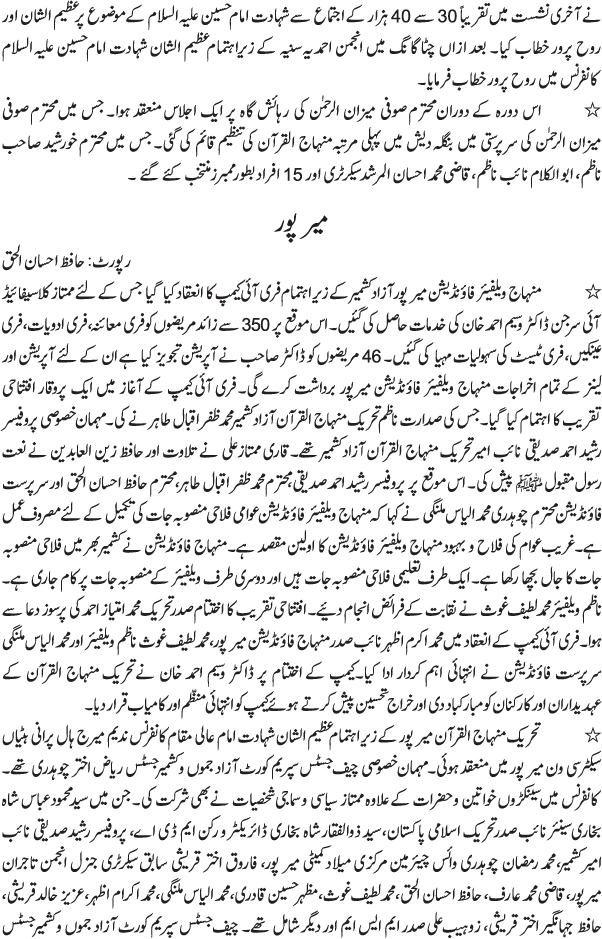 نے آخری نشست میں تقریباً 30 سے 40 ہزار کے اجتماع سے شہادت امام حسین علیہ السلام کے موضوع پر عظیم الشان اور
روح پرور خطاب کیا۔ بعد ازاں چٹاگانگ میں انجمن احمدیہ سنیہ کے زیراہتمام عظیم الشان شہادت امام حسین علیہ السلام
کانفرنس میں روح پرور خطاب فرمایا۔
☆ اس دورہ کے دوران محترم صوفی میزان الرحمٰن کی رہائش گاہ پر ایک اجلاس منعقد ہوا۔ جس میں محترم صوفی
میزان الرحمٰن کی سرپرستی میں بنگلہ دیش میں پہلی مرتبہ منہاج القرآن کی تنظیم قائم کی گئی۔ جس میں محترم خورشید صاحب
ناظم، ابوالکلام نائب ناظم، قاضی محمد احسان المرشد سیکرٹری اور 15 افراد بطور ممبرز منتخب کئے گئے ۔
میر پور
رپورٹ: حافظ احسان الحق
☆ منہاج ویلفیئر فاؤنڈیشن میر پور آزاد کشمیر کے زیراہتمام فری آئی کیمپ کا انعقاد کیا گیا جس کے لئے ممتاز کلاسیفائیڈ
آئی سرجن ڈاکٹر وسیم احمد خان کی خدمات حاصل کی گئیں۔ اس موقع پر 350 سے زائد مریضوں کو فری معائنہ، فری ادویات، فری
عینکیں، فری ٹیسٹ کی سہولیات مہیا کی گئیں۔ 46 مریضوں کو ڈاکٹر صاحب نے آپریشن تجویز کیا ہے ان کے لئے آپریشن اور
لینز کے تمام اخراجات منہاج ویلفیئر فاؤنڈیشن میر پور برداشت کرے گی۔ فری آئی کیمپ کے آغاز میں ایک پروقار افتتاحی
تقریب کا اہتمام کیا گیا۔ جس کی صدارت ناظم تحریک منہاج القرآن آزاد کشمیر محمد ظفر اقبال طاہر نے کی۔ مہمان خصوصی پروفیسر
رشید احمد صدیقی نائب امیر تحریک منہاج القرآن آزاد کشمیر تھے۔ قاری ممتاز علی نے تلاوت اور حافظ زین العابدین نے نعت
رسول مقبول ﷺ پیش کی۔ اس موقع پر پروفیسر رشید احمد صدیقی، محترم محمد ظفر اقبال طاہر، محترم حافظ احسان الحق اور سرپرست
فاؤنڈیشن محترم چوہدری محمد الیاس ملنگی نے کہا کہ منہاج ویلفیئر فاؤنڈیشن عوامی فلاحی منصوبہ جات کی تکمیل کے لئے مصروف عمل
ہے۔ غریب عوام کی فلاح و بہبود منہاج ویلفیئر فاؤنڈیشن کا اولین مقصد ہے۔ منہاج فاؤنڈیشن نے کشمیر بھر میں فلاحی منصوبہ
جات کا جال بچھا رکھا ہے۔ ایک طرف تعلیمی فلاحی منصوبہ جات ہیں اور دوسری طرف ویلفیئر کے منصوبہ جات پر کام جاری ہے۔
ناظم ویلفیئر محمد لطیف غوث نے نقابت کے فرائض انجام دیئے۔ افتتاحی تقریب کا اختتام صدر تحریک محمد امتیاز احمد کی پرسوز دعا سے
ہوا۔ فری آئی کیمپ کے انعقاد میں محمد اکرم اظہر نائب صدر منہاج فاؤنڈیشن میر پور، محمد لطیف غوث ناظم ویلفیئر اور محمد الیاس ملنگی
سرپرست فاؤنڈیشن نے انتہائی اہم کردار ادا کیا۔ کیمپ کے اختتام پر ڈاکٹر وسیم احمد خان نے تحریک منہاج القرآن کے
عہدیداران اور کارکنان کو مبارکباد دی اور خراج تحسین پیش کرتے ہوئے کیمپ کو انتہائی منظم اور کامیاب قرار دیا۔
☆ تحریک منہاج القرآن میر پور کے زیراہتمام عظیم الشان شہادت امام عالی مقام کانفرنس ندیم میرج ہال پرانی ہٹیاں
سیکٹر سی ون میر پور میں منعقد ہوئی۔ مہمان خصوصی چیف جسٹس سپریم کورٹ آزاد جموں و کشمیر جسٹس ریاض اختر چوہدری تھے۔
کانفرنس میں سینکڑوں خواتین و حضرات کے علاوہ ممتاز سیاسی و سماجی شخصیات نے بھی شرکت کی۔ جن میں سید محمود عباس شاہ
بخاری سینئر نائب صدر تحریک اسلامی پاکستان، سید ذوالفقار شاہ بخاری ڈائریکٹر و رکن ایم ڈی اے، پروفیسر رشید صدیقی نائب
امیر کشمیر، محمد رمضان چوہدری وائس چیئرمین مرکزی میلاد کمیٹی میر پور، فاروق اختر قریشی سابق سیکرٹری جنرل انجمن تاجران
میر پور، قاضی محمد عارف، حافظ احسان الحق، محمد لطیف غوث، مظہر حسین قادری، محمد الیاس ملنگی، محمد اکرام اظہر، عزیز خالد قریشی،
حافظ جہانگیر اختر قریشی، زوہیب علی صدر ایم ایس ایم اور دیگر شامل تھے۔ چیف جسٹس سپریم کورٹ آزاد جموں و کشمیر جسٹس